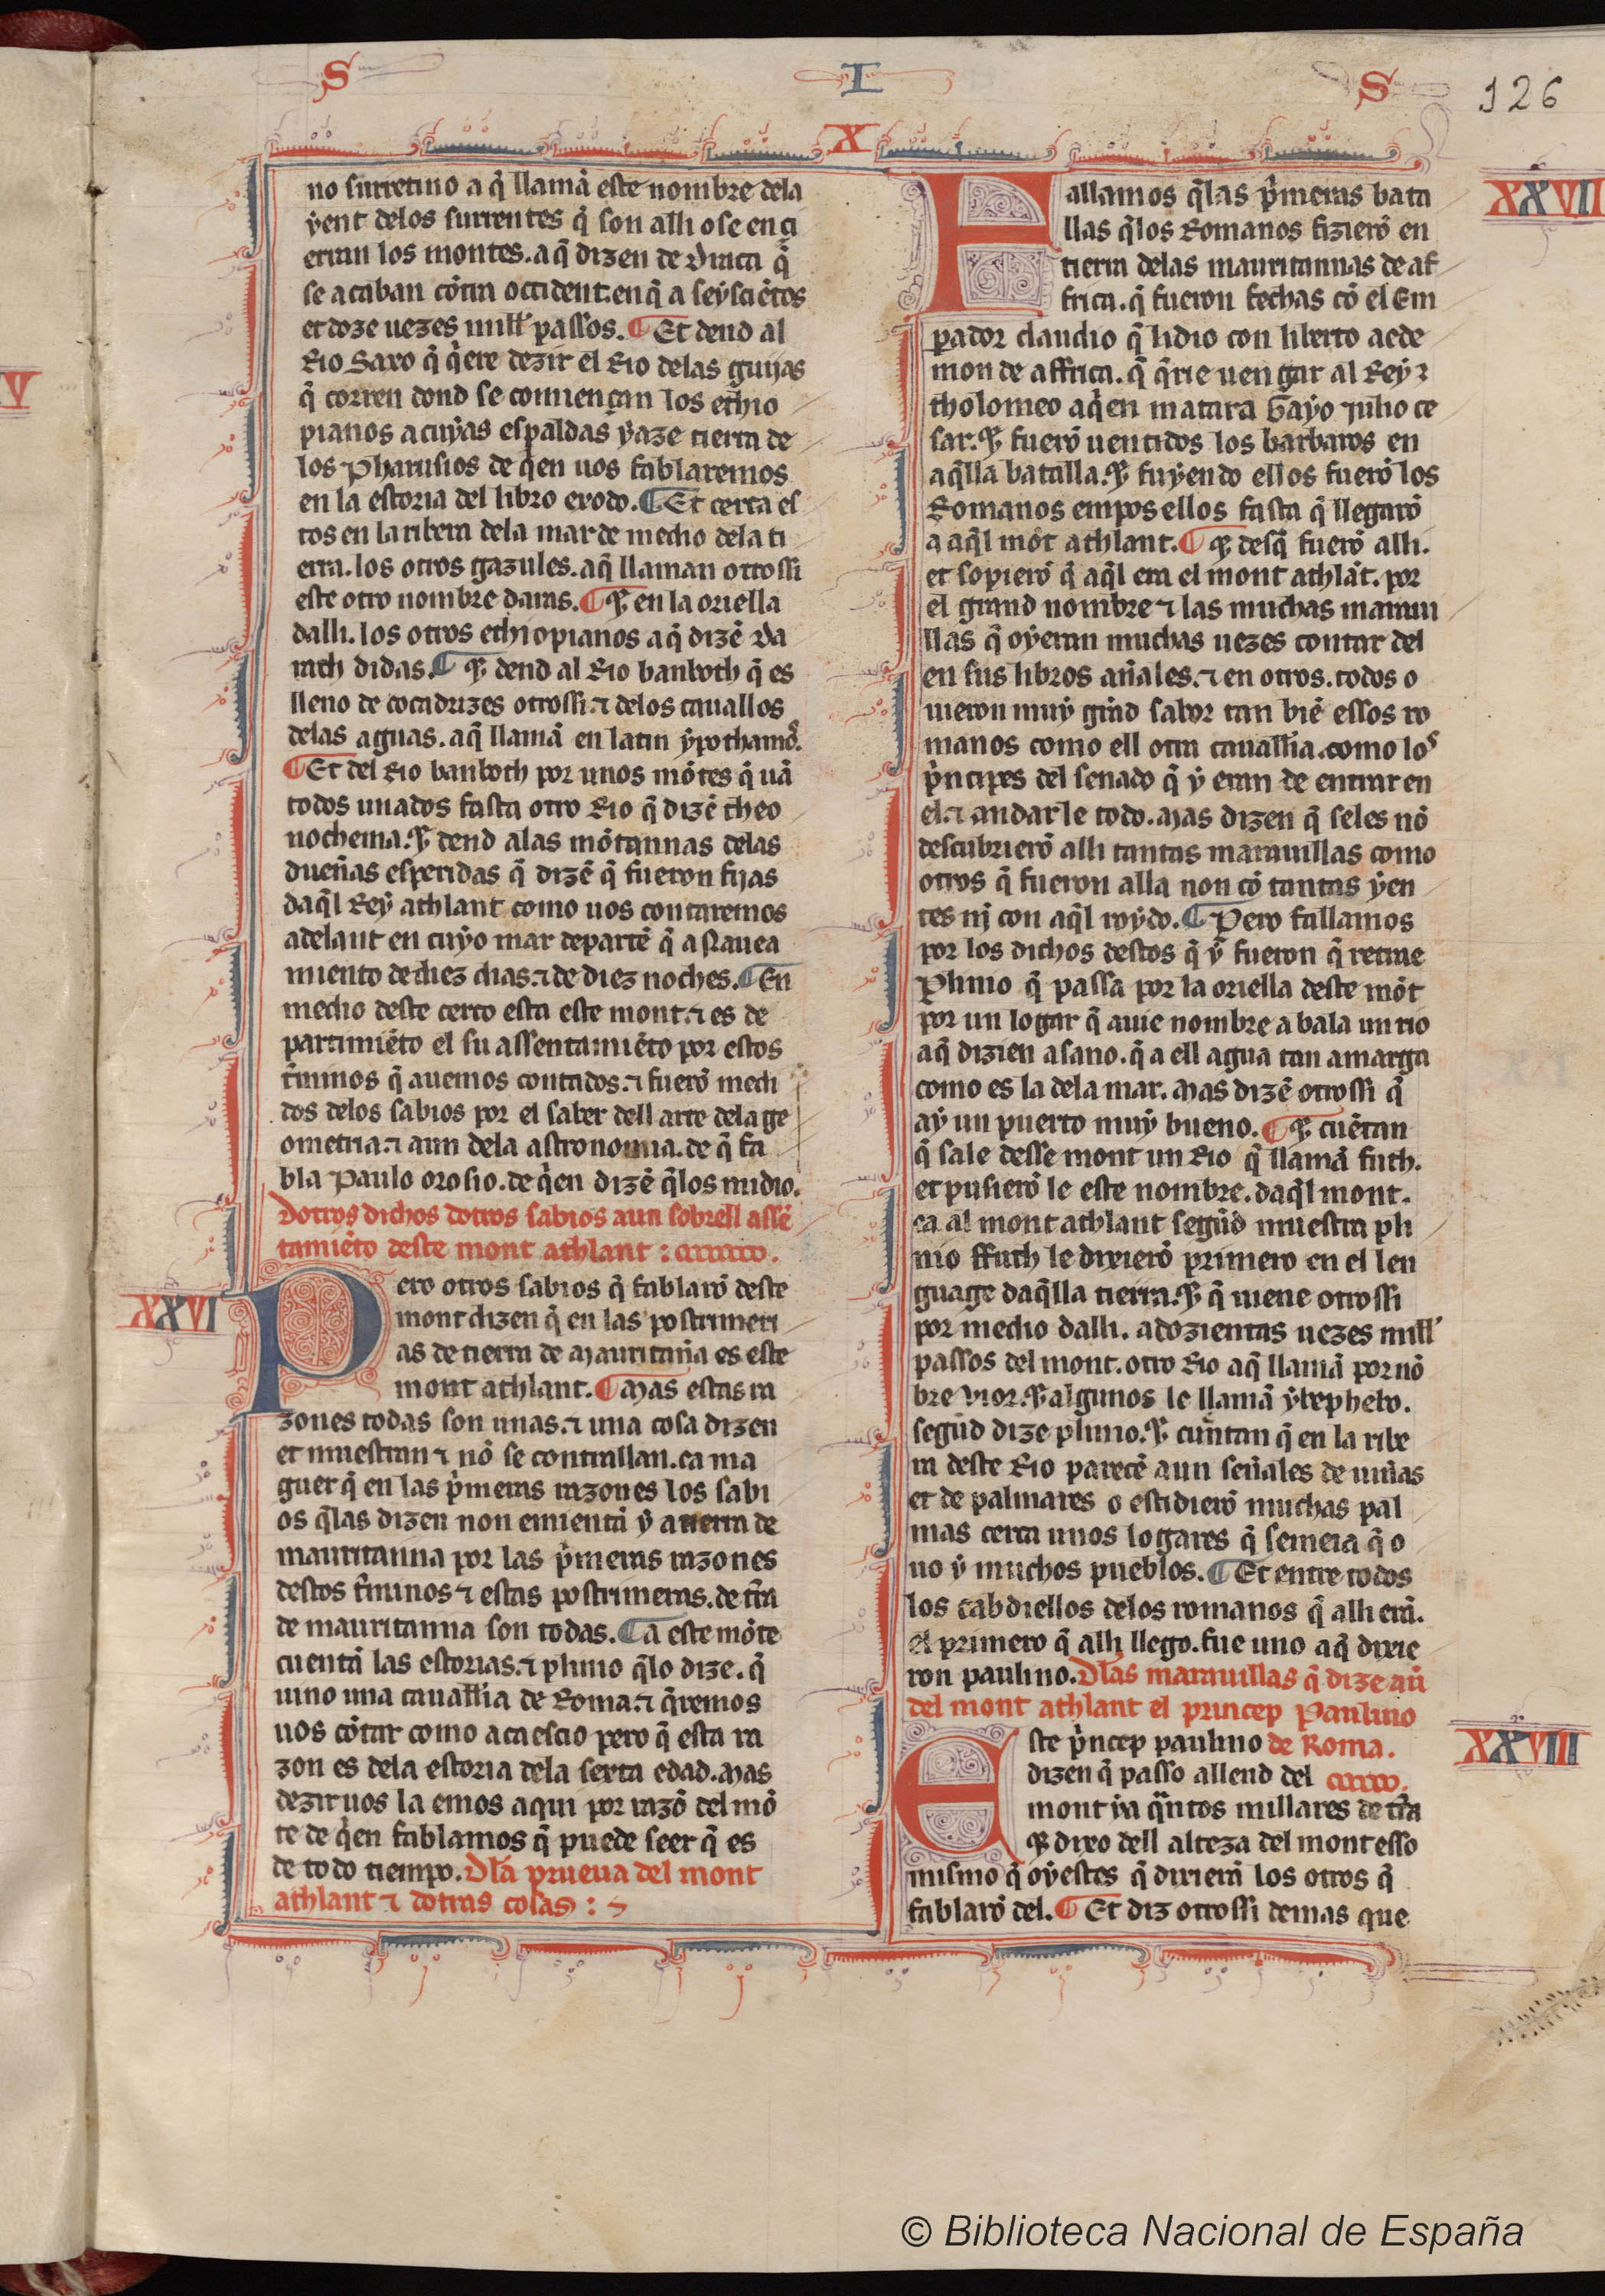 S I S
126
X
no surretino a q̃ llamã este nombre dela
yent delos surrentes q̃ son alli o se enci
erran los montes. a q̃ dizen de Diuta q̃
se acaban cõtra occident. en q̃ a seysciẽtos
et doze uezes mill passos. ¶ Et dend al
Rio Saxo q̃ q̃ere dezir el Rio delas guijas
q̃ corren dond se comiençan los ethio
pianos a cuyas espaldas yaze tierra de
los Pharusios de q̃en uos fablaremos
en la estoria del libro exodo. ¶ Et cerca es
tos en la ribera dela mar de medio dela ti
erra. los otros gazules. a q̃ llaman otrossi
este otro nombre daras. ¶ ⁊ en la oriella
dalli. los otros ethiopianos a q̃ dizẽ Da
rath didas. ¶ ⁊ dend al Rio banboth q̃ es
lleno de cocadrizes otrossi. ⁊ delos cauallos
delas aguas. a q̃ llamã en latin ypothamos.
¶ Et del Rio banboth por unos mõtes q̃ uã
todos unados fasta otro Rio q̃ dizẽ theo
nochema. ⁊ dend alas mõtannas delas
dueñas esperidas q̃ dizẽ q̃ fueron fijas
daq̃l Rey athlant como uos contaremos
adelant en cuyo mar departẽ q̃ a Nauea
miento de diez dias. ⁊ de diez noches. ¶ En
medio deste cerco esta este mont. ⁊ es de
partimiẽto el su assentamiẽto por estos
t̃minos q̃ auemos contados. ⁊ fuerõ medi
dos delos sabios por el saber dell arte dela ge
ometria. ⁊ aun dela astronomia. de q̃ fa
bla Paulo orosio. de q̃en dizẽ q̃los midio.
Dotros dichos dotros sabios aun sobrell assẽ
tamiẽto deste mont athlant :
XXVI
Pero otros sabios q̃ fablarõ deste
mont dizen q̃ en las postrimeri
as de tierra de Mauritaña es este
mont athlant. ¶ Mas estas ra
zones todas son unas. ⁊ una cosa dizen
et muestran ⁊ nõ se contrallan. ca ma
guer q̃ en las p̃meras razones los sabi
os q̃las dizen non emientã y a tierra de
mauritanna por las p̃meras razones
destos t̃minos ⁊ estas postrimeras. de t̃ra
de mauritanna son todas. ¶ A este mõte
cuentã las estorias. ⁊ plinio q̃lo dize. q̃
uino una cauallia de Roma. ⁊ q̃remos
uos cõtar como acaescio pero q̃ esta ra
zon es dela estoria dela sexta edad. Mas
dezir uos la emos aqui por razõ del mõ
te de q̃en fablamos q̃ puede seer q̃ es
de todo tiempo. Dla prueua del mont
athlant ⁊ dotras cosas :
XXVII
Fallamos q̃las p̃meras bata
llas q̃los Romanos fizierõ en
tierra delas mauritannas de af
frica. q̃ fueron fechas cõ el Em
pador claudio q̃ lidio con liberto aede
mon de affrica. q̃ q̃rie uengar al Rey
tholomeo aq̃en matara Gayo julio ce
sar. ⁊ fuerõ uençidos los barbaros en
aq̃lla batalla. ⁊ fuyendo ellos fuerõ los
Romanos empos ellos fasta q̃ llegarõ
a aq̃l mõt athlant. ¶ ⁊ desq̃ fuerõ alli.
et sopierõ q̃ aq̃l era el mont athlãt. por
el grand nombre ⁊ las muchas maraui
llas q̃ oyeran muchas uezes contar del
en sus libros añales. ⁊ en otros. todos o
uieron muy grãd sabor tan biẽ essos ro
manos como ell otra cauallia. como los
p̃ncipes del senado q̃ y eran de entrar en
el. ⁊ andar le todo. Mas dizen q̃ seles nõ
descubrierõ alli tantas marauillas como
otros q̃ fueron alla non cõ tantas yen
tes nj con aq̃l roydo. ¶ Pero fallamos
por los dichos destos q̃ y fueron q̃ retrae
Plinio q̃ passa por la oriella deste mõt
por un logar q̃ auie nombre abala un rio
aq̃ dizien asano. q̃ a ell agua tan amarga
como es la dela mar. Mas dizẽ otrossi q̃
ay un puerto muy bueno. ¶ ⁊ cuẽtan
q̃ sale desse mont un Rio q̃ llamã futh.
et pusierõ le este nombre. daq̃l mont.
ca al mont athlant segũd muestra pli
nio ffuth le dixierõ primero en el len
guage daq̃lla tierra. ⁊ q̃ uiene otrossi
por medio dalli. a dozientas uezes mill
passos del mont. otro Rio aq̃ llamã por nõ
bre Vior. ⁊ algunos le llamã ytephelo.
segũd dize plinio. ⁊ cuẽntan q̃ en la ribe
ra deste Rio parecẽ aun señales de uiñas
et de palmares o estidierõ muchas pal
mas cerca unos logares q̃ semeia q̃ o
uo y muchos pueblos. ¶ Et entre todos
los cabdiellos delos romanos q̃ alli erã.
el primero q̃ alli llego. fue uno aq̃ dixie
ron paulino. Dlas marauillas q̃ dize aũ
del mont athlant el princep Paulino
de Roma.
XXVIII
Este p̃ncep paulino
dizen q̃ passo allend del
mont ya q̃ntos millares de t̃ra
⁊ dixo dell alteza del mont esso
mismo q̃ oyestes q̃ dixierã los otros q̃
fablarõ del. ¶ Et diz otrossi demas que
© Biblioteca Nacional de España